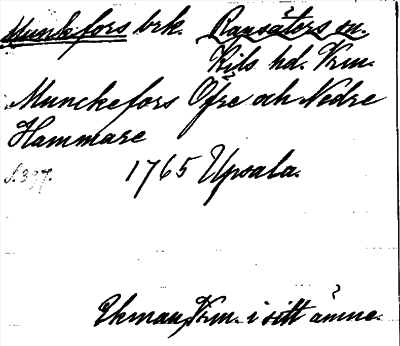 Munkefors brk. Ransäters sn.
Kils hd. Vrm.
Munckefors Öfre och Nedre
Hammare
S. 397. 1765 Upsala.
Ekman, Vrm. i sitt ämne.